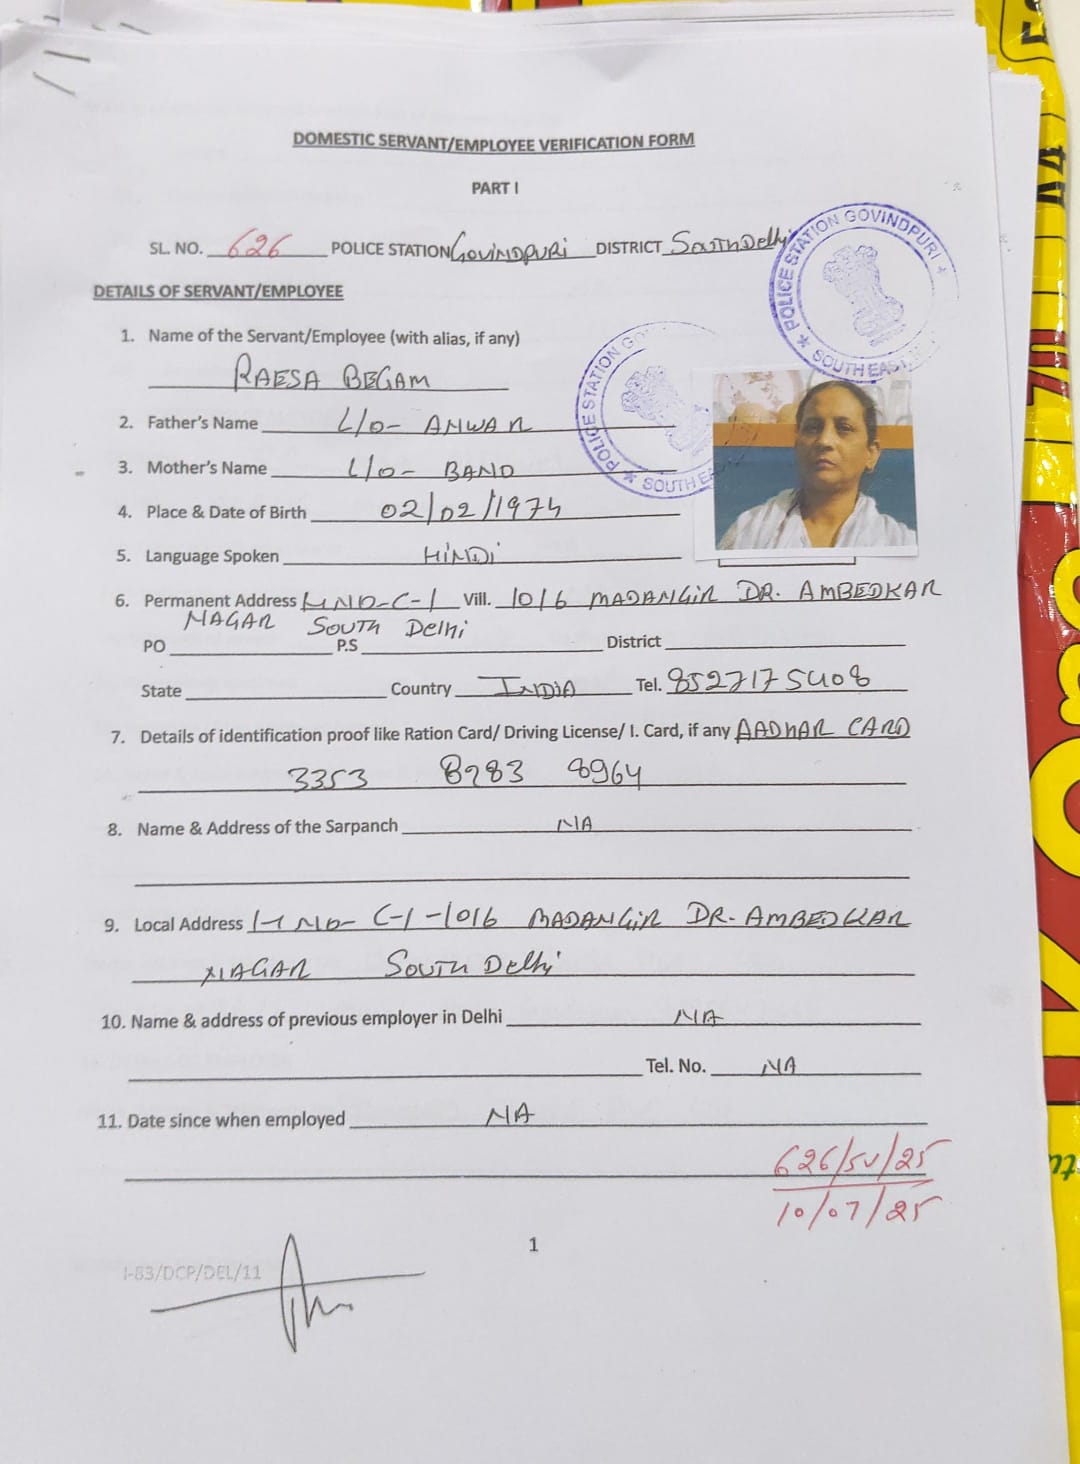 DOMESTIC SERVANT/EMPLOYEE VERIFICATION FORM
PART I
SL. NO. 626 POLICE STATION GOVINDPURI DISTRICT South Delhi
POLICE STATION GOVINDPURI
SOUTH EAST
POLICE STATION GO
SOUTH EA
DETAILS OF SERVANT/EMPLOYEE
1. Name of the Servant/Employee (with alias, if any)
RAESA BEGAM
2. Father's Name L/O- ANWAR
3. Mother's Name L/O- BANO
4. Place & Date of Birth 02/02/1974
5. Language Spoken HINDI
6. Permanent Address HNO-C-1 Vill. 1016 MADANGIR DR. AMBEDKAR
NAGAR South Delhi
PO P.S District
State Country INDIA Tel. 8527175408
7. Details of identification proof like Ration Card/ Driving License/ I. Card, if any AADHAR CARD
3353 8283 8964
8. Name & Address of the Sarpanch NA
9. Local Address H NO- C-1-1016 MADANGIR DR. AMBEDKAR
NAGAR South Delhi
10. Name & address of previous employer in Delhi NA
Tel. No. NA
11. Date since when employed NA
626/SV/25
10/07/25
1
I-83/DCP/DEL/11